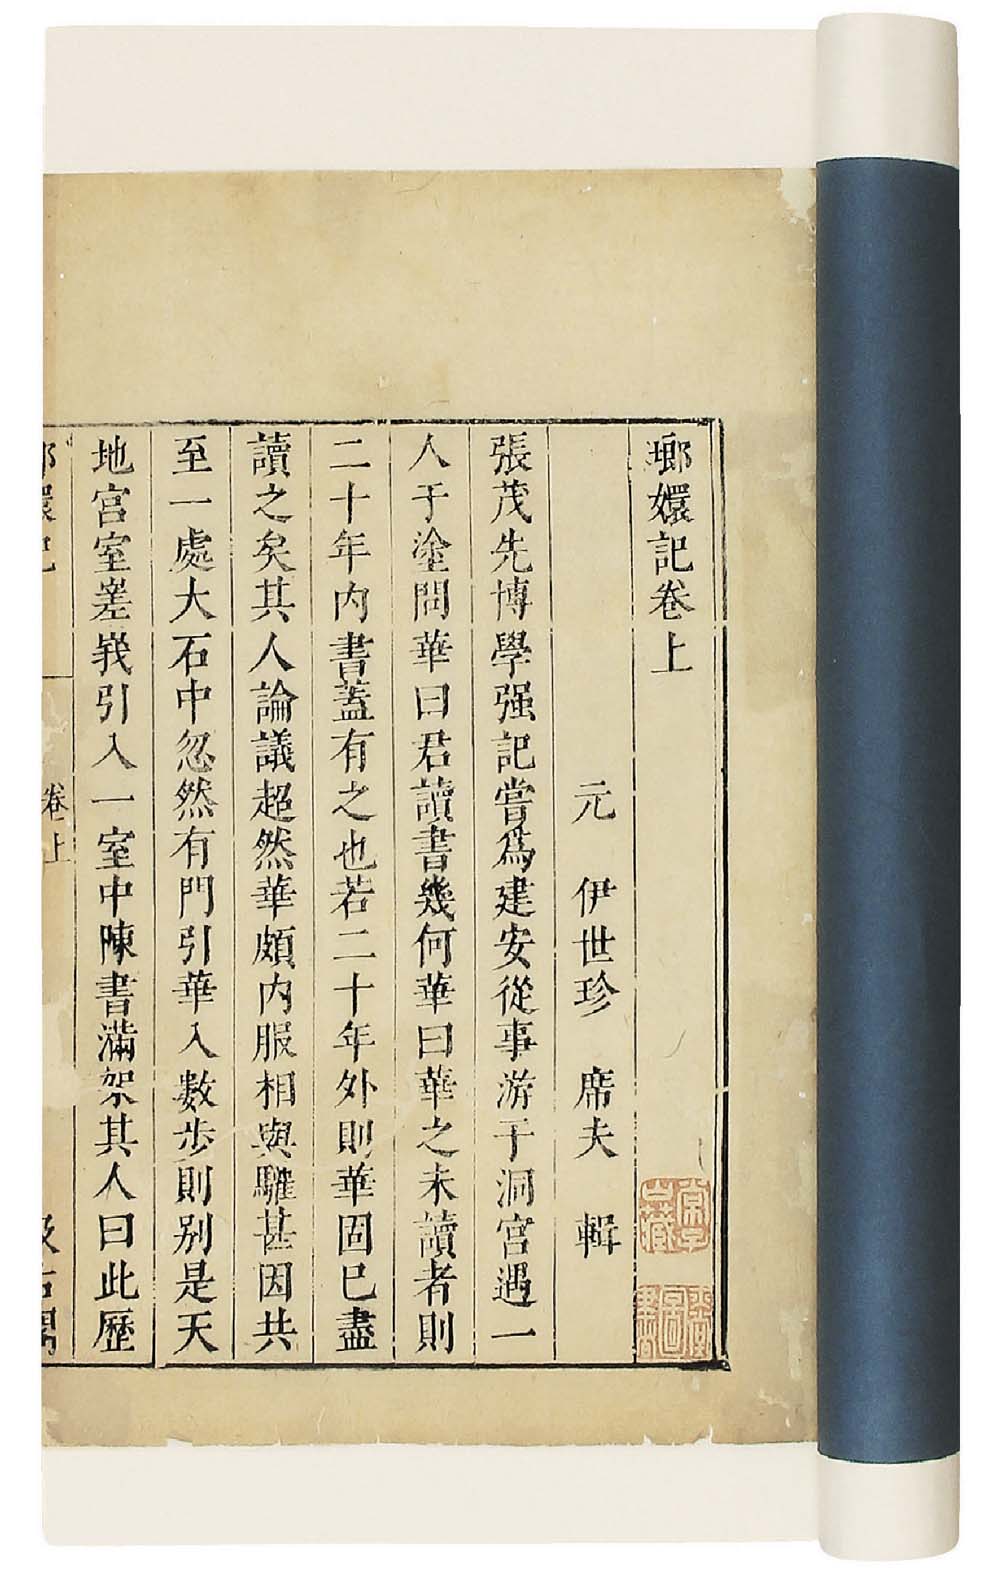 瑯嬛記卷上
元 伊世珍 席夫 輯
張茂先博學强記嘗爲建安從事游于洞宮遇一
人于塗問華曰君讀書幾何華曰華之未讀者則
二十年內書蓋有之也若二十年外則華固已盡
讀之矣其人論議超然華頗内服相與驩甚因共
至一處大石中忽然有門引華入數步則别是天
地宮室嵳峩引入一室中陳書滿架其人曰此歷
卷上